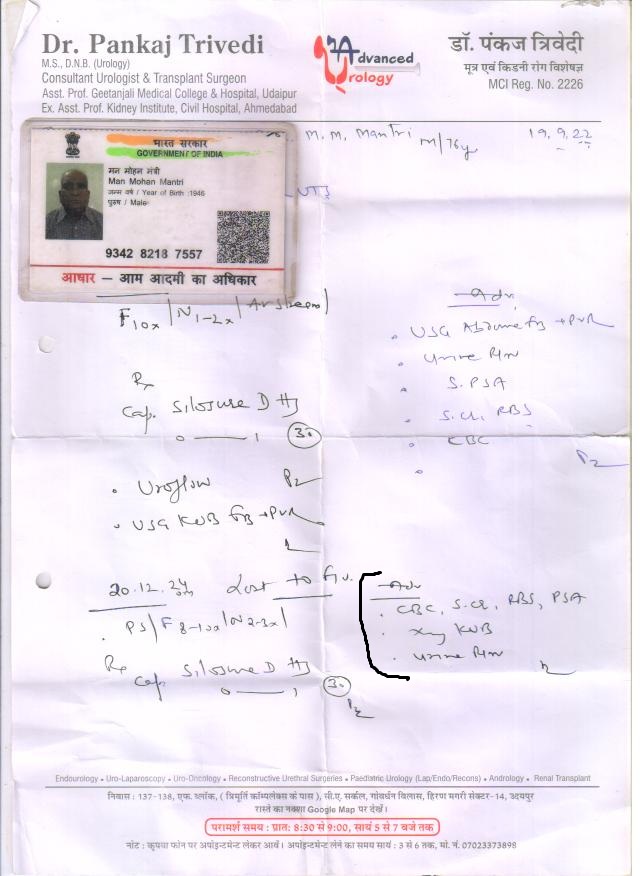 Dr. Pankaj Trivedi
M.S., D.N.B. (Urology)
Consultant Urologist & Transplant Surgeon
Asst. Prof. Geetanjali Medical College & Hospital, Udaipur
Ex. Asst. Prof. Kidney Institute, Civil Hospital, Ahmedabad
Advanced
Urology
डॉ. पंकज त्रिवेदी
मूत्र एवं किडनी रोग विशेषज्ञ
MCI Reg. No. 2226
M. M. Mantri M/76y 19.9.22
भारत सरकार
GOVERNMENT OF INDIA
मन मोहन मंत्री
Man Mohan Mantri
जन्म वर्ष / Year of Birth :1946
पुरुष / Male
9342 8218 7557
आधार – आम आदमी का अधिकार
F10x/N1-2x/
Adv
USG +PVR
Urine R/M
S. PSA
S. Cr, RBS
CBC
Rx
Cap. Silosure D
0 — 1 30
Uroflow
USG KUB +PVR
20.12.24 Lost to F/U.
PS/F8-10x/N2-3x/
Rx Cap. Silosure D
0 — 1 30
Adv
CBC, S.Cr, RBS, PSA
Xray KUB
Urine R/M
Endourology • Uro-Laparoscopy • Uro-Oncology • Reconstructive Urethral Surgeries • Paediatric Urology (Lap/Endo/Recons) • Andrology • Renal Transplant
निवास : 137-138, एफ. ब्लॉक, ( त्रिमूर्ति कॉम्पलेक्स के पास ), सी.ए. सर्कल, गोवर्धन विलास, हिरण मगरी सेक्टर-14, उदयपुर
रास्ते का नक्शा Google Map पर देखें।
परामर्श समय : प्रात: 8:30 से 9:00, सायं 5 से 7 बजे तक
नोट : कृपया फोन पर अपॉइन्टमेन्ट लेकर आवें। अपॉइन्टमेन्ट लेने का समय सायं : 3 से 6 तक, मो. नं. 07023373898